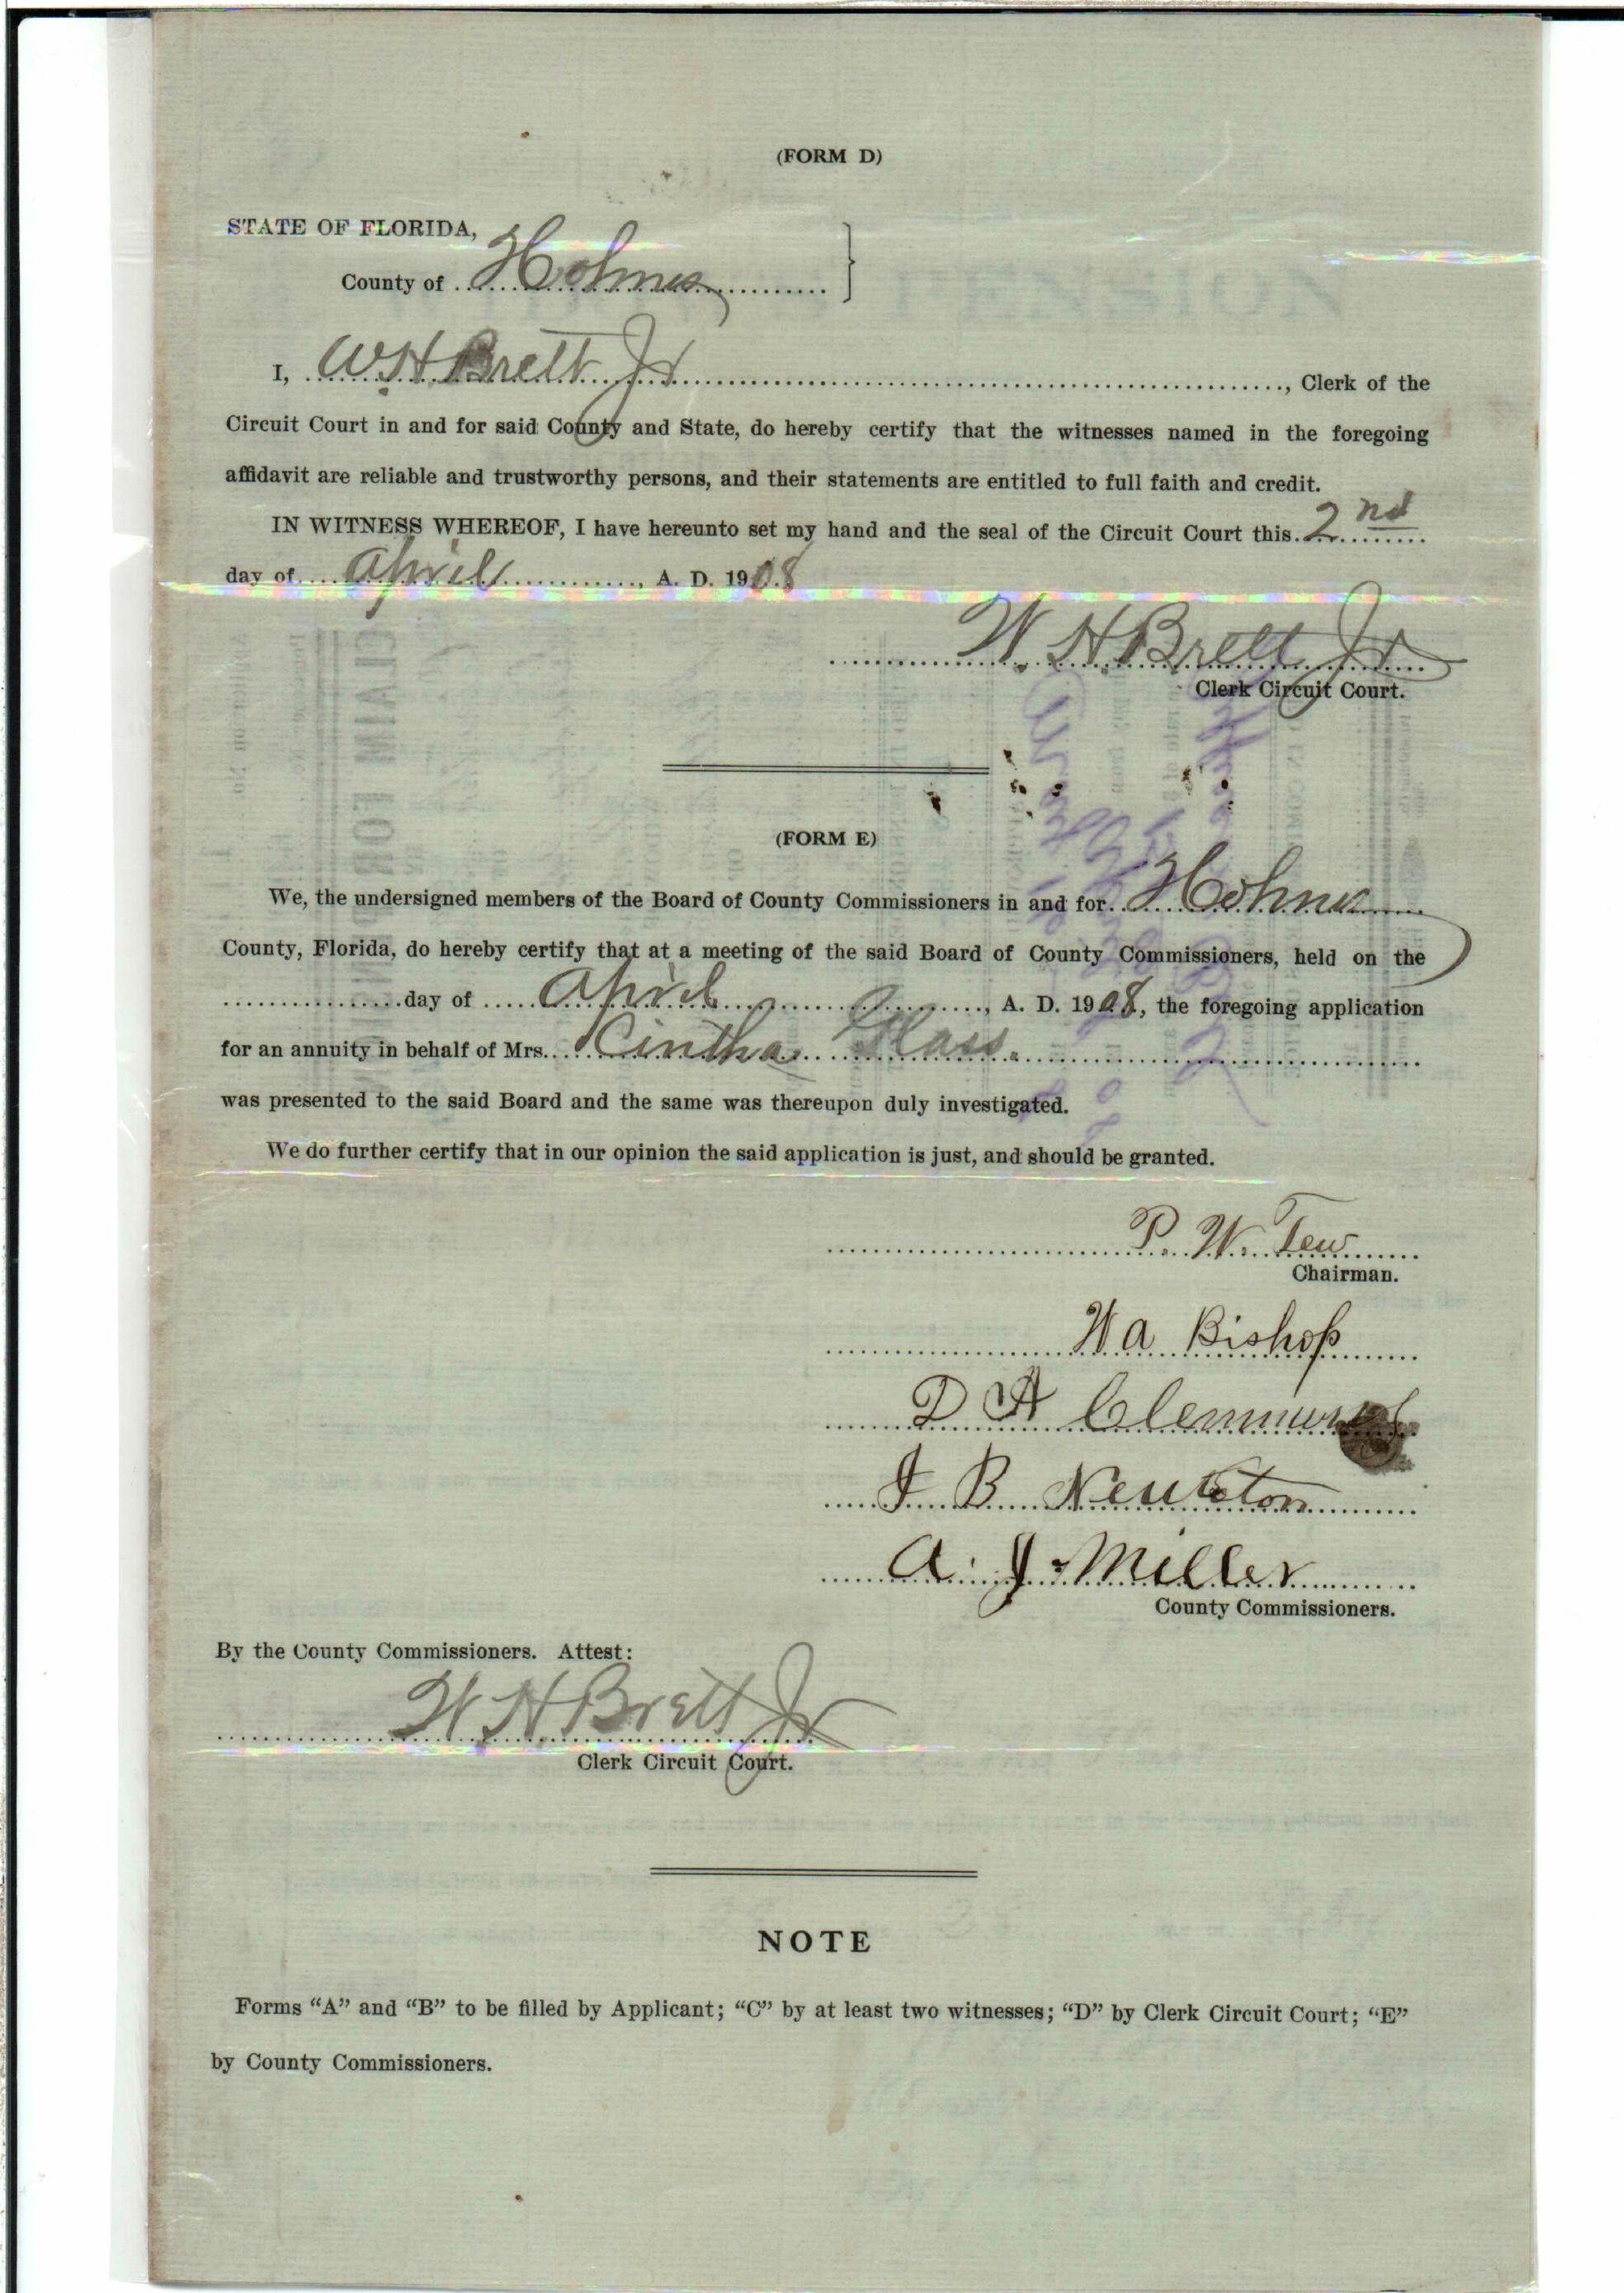 (FORM D)
STATE OF FLORIDA,
County of Holmes
I, W.H. Brett Jr, Clerk of the
Circuit Court in and for said County and State, do hereby certify that the witnesses named in the foregoing
affidavit are reliable and trustworthy persons, and their statements are entitled to full faith and credit.
IN WITNESS WHEREOF, I have hereunto set my hand and the seal of the Circuit Court this 2nd
day of April, A. D. 1908
W. H Brett Jr
Clerk Circuit Court.
(FORM E)
We, the undersigned members of the Board of County Commissioners in and for Holmes
County, Florida, do hereby certify that at a meeting of the said Board of County Commissioners, held on the
day of April, A. D. 1908, the foregoing application
for an annuity in behalf of Mrs. Cintha Glass.
was presented to the said Board and the same was thereupon duly investigated.
We do further certify that in our opinion the said application is just, and should be granted.
P. W. Tew
Chairman.
W A Bishop
D A
J B Newton
A. J. Miller
County Commissioners.
By the County Commissioners. Attest:
W H Brett Jr
Clerk Circuit Court.
NOTE
Forms “A” and “B” to be filled by Applicant; “C” by at least two witnesses; “D” by Clerk Circuit Court; “E”
by County Commissioners.